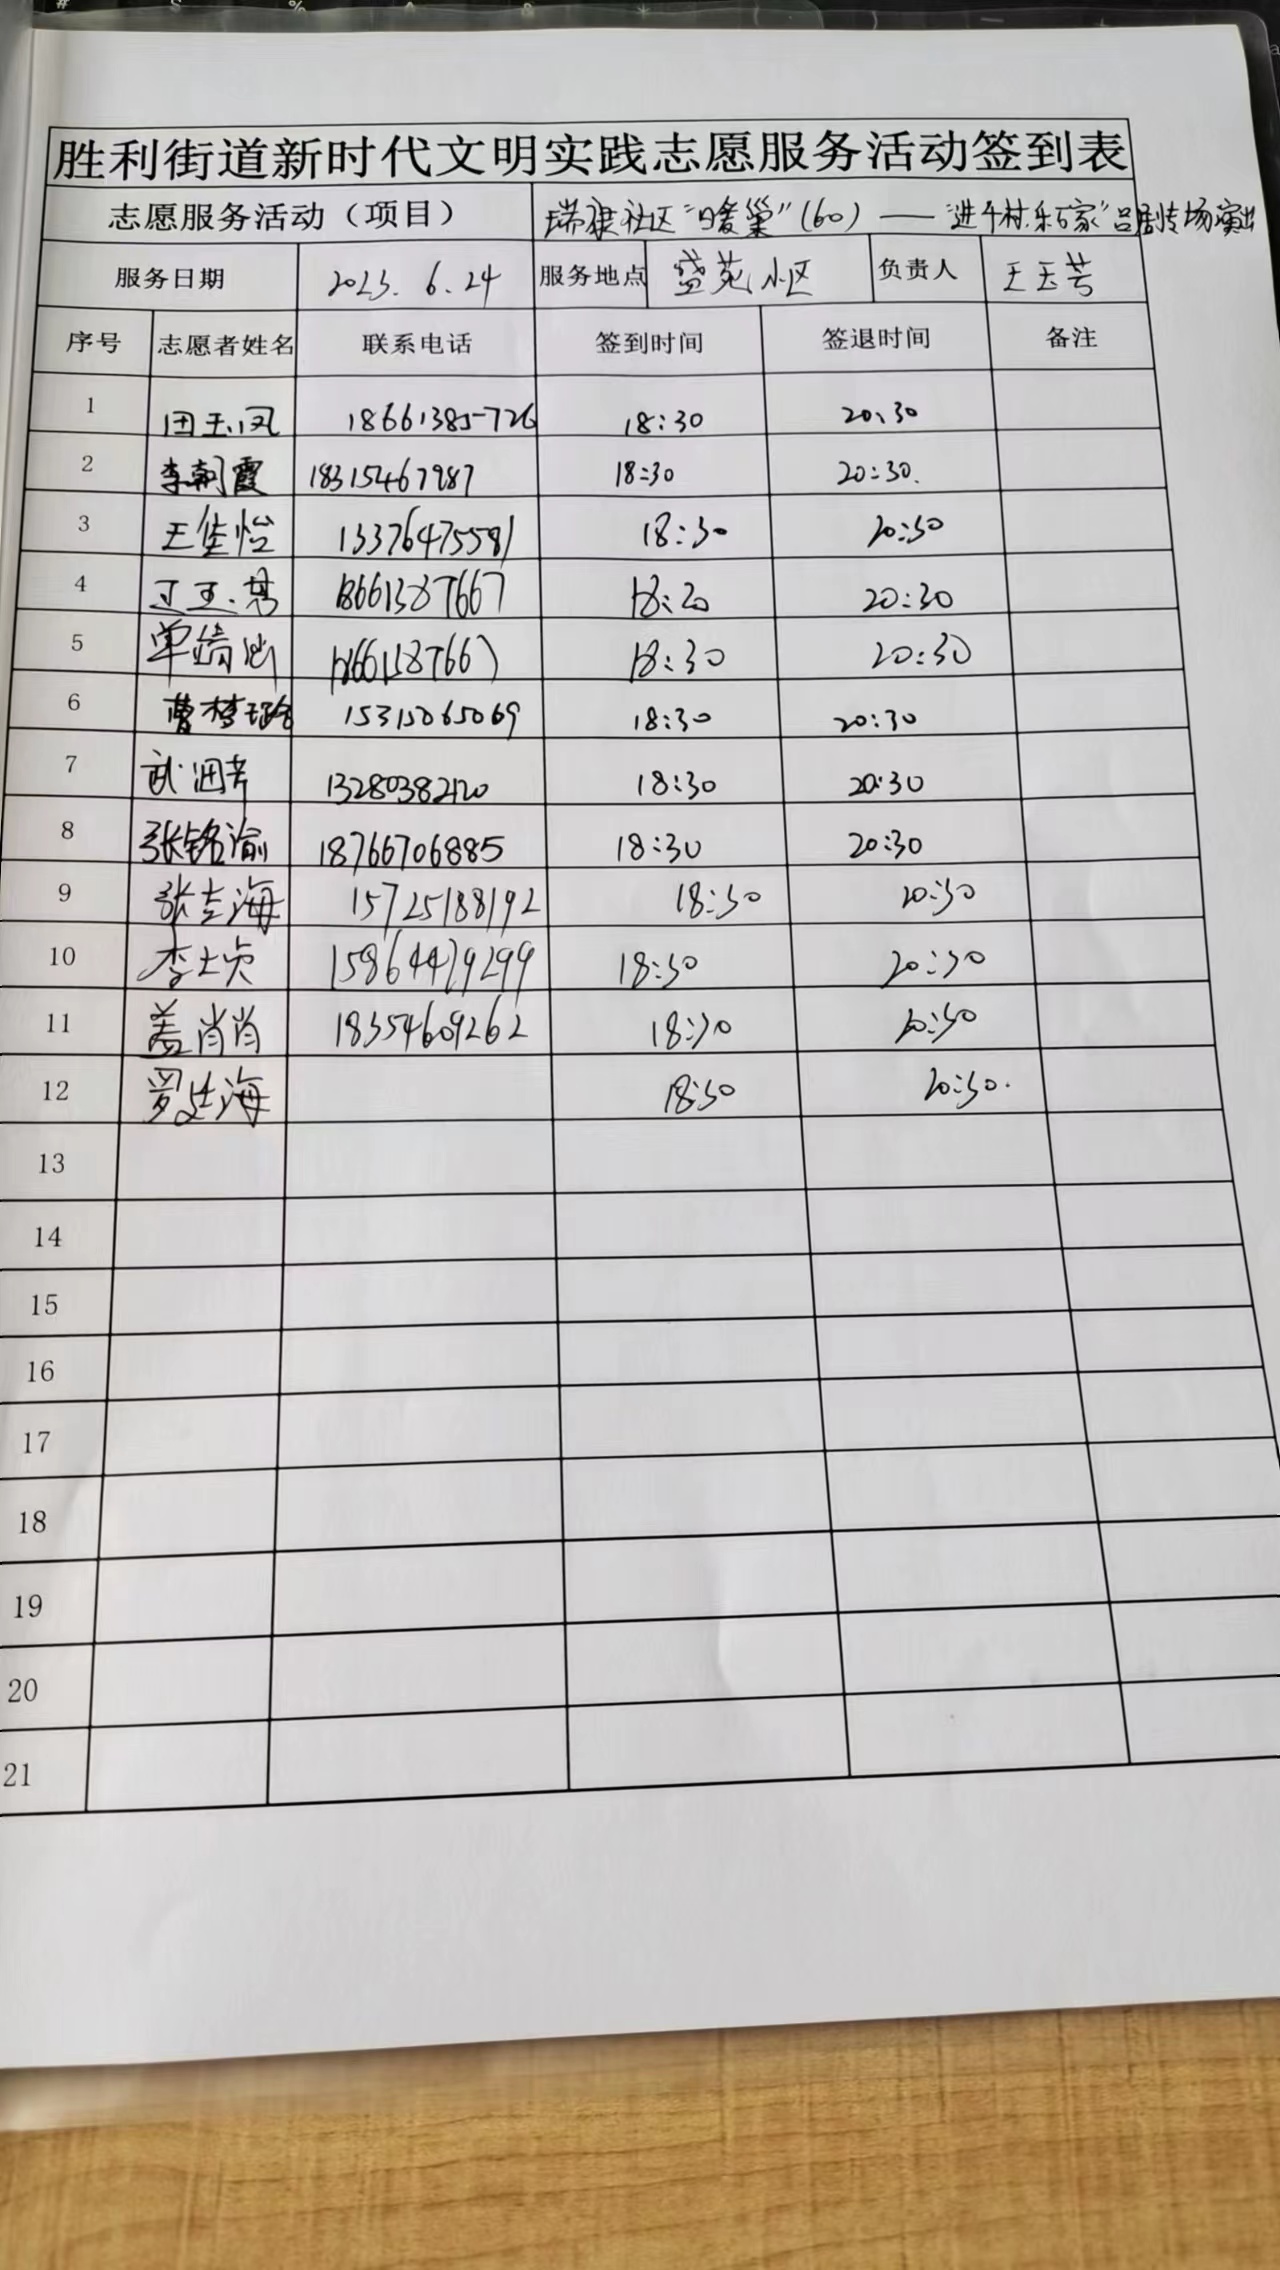 胜利街道新时代文明实践志愿服务活动签到表
志愿服务活动（项目） 瑞康社区“暖巢”（60）——“进千村.乐百家”吕剧专场演出
服务日期 2023.6.24 服务地点 盛苑小区 负责人 王玉芳
序号 志愿者姓名 联系电话 签到时间 签退时间 备注
1 田玉凤 18661385726 18:30 20:30
2 李朝霞 18315467987 18:30 20:30
3 王佳怡 13376475581 18:30 20:30
4 18661387667 18:20 20:30
5 单 18661387667 18:30 20:30
6 曹梦晗 15315065069 18:30 20:30
7 武 13280382120 18:30 20:30
8 张铭渝 18766706885 18:30 20:30
9 张志海 15725188192 18:30 20:30
10 李士贞 15864479299 18:30 20:30
11 盖肖肖 18354609262 18:30 20:30
12 罗 海 18:30 20:30.
13
14
15
16
17
18
19
20
21